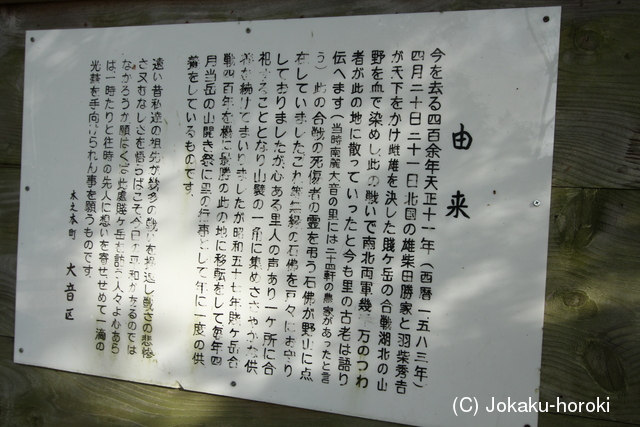 由来
今を去る四百余年天正十一年(西暦一五八三年)
四月二十日二十一日北国の雄柴田勝家と羽柴秀吉
が天下をかけ雌雄を決した賤ケ岳の合戦湖北の山
野を血で染めし此の戦いで南北両軍幾 万のつわ
者が此の地に散っていったと今も里の古老は語り
伝へます(当時南麓大音の里には二十四軒の農家があったと言
う)此の合戦の死傷者の霊を弔う石佛が野山に点
在していましたこれ 無縁の石佛を戸々にお守り
しておりましたが心ある里人の声あり一ケ所に合
祀することとなり山嶴の一角に集めささやかな供
養が続けてまいりましたが昭和五十七年賤ケ岳合
戦四百年を機に 勝の此の地に移転をして毎年四
月当岳の山開き祭に里の行事として年に一度の供
養をしているものです。
遠い昔私達の祖先が数多の戦いを繰返し戦さの悲惨
さ又むなしさを悟ったればこそ今日の平和があるのでは
なかろうか願はくば此處賤ケ岳を訪う人々よ心あら
ば一時たりと往時の先人に想いを寄せせめて一滴の
光熱を手向けられん事を願うものです。
木之本町 大音区
(C) Jokaku-horoki